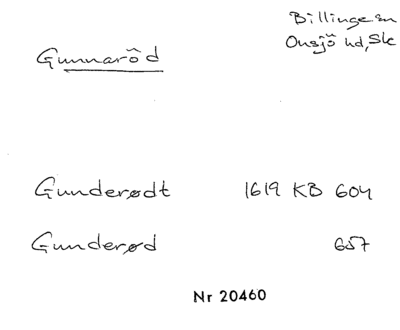 Billinge sn
Gunnaröd
Onsjö hd, Sk
Gunderødt 1619 KB 604
Gunderød 657
Nr 20460